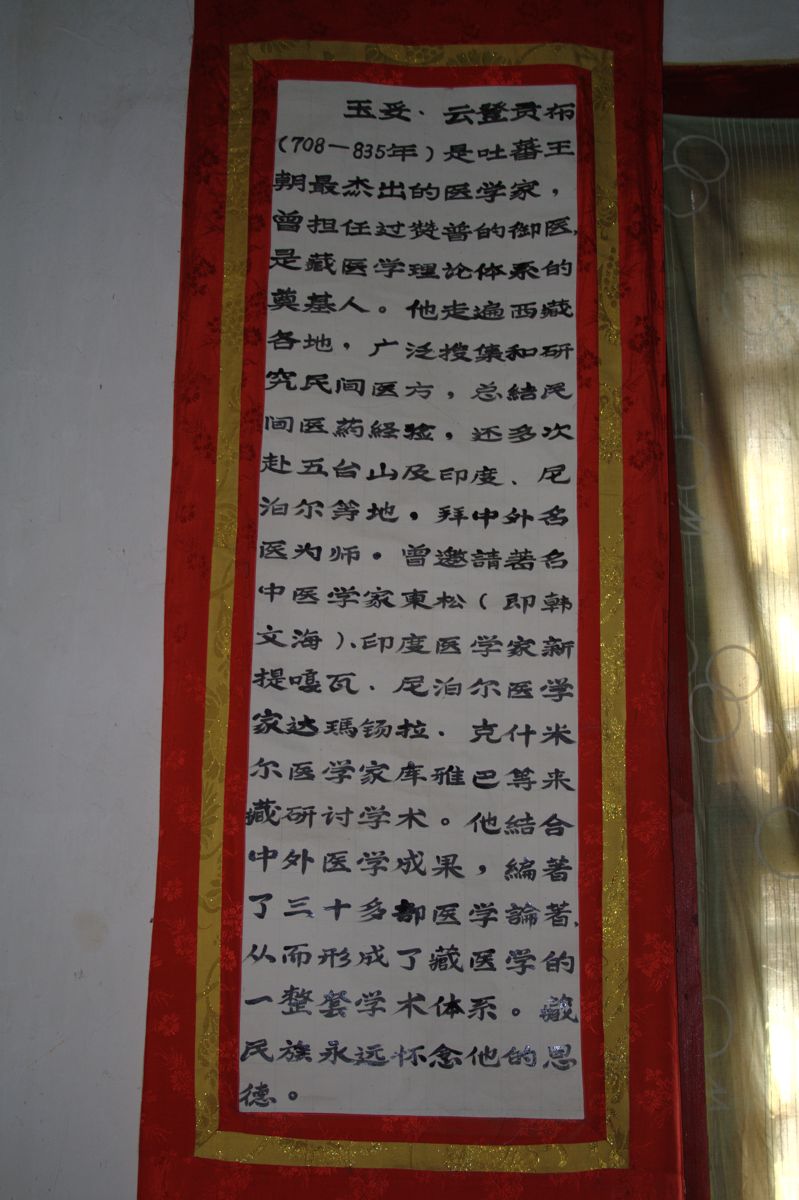 玉妥·云登贡布
(708—835年)是吐蕃王
朝最杰出的医学家，
曾担任过赞普的御医，
是藏医学理论体系的
奠基人。他走遍西藏
各地，广泛搜集和研
究民间医方，总結民
间医药経验，还多次
赴五台山及印度、尼
泊尔等地，拜中外名
医为师。曾邀請著名
中医学家東松(即韩
文海)、印度医学家新
提嘎瓦、尼泊尔医学
家达瑪钖拉、克什米
尔医学家库雅巴等来
藏研讨学术。他結合
中外医学成果，編著
了三十多部医学論著，
从而形成了藏医学的
一整套学术体系。藏
民族永远怀念他的恩
德。